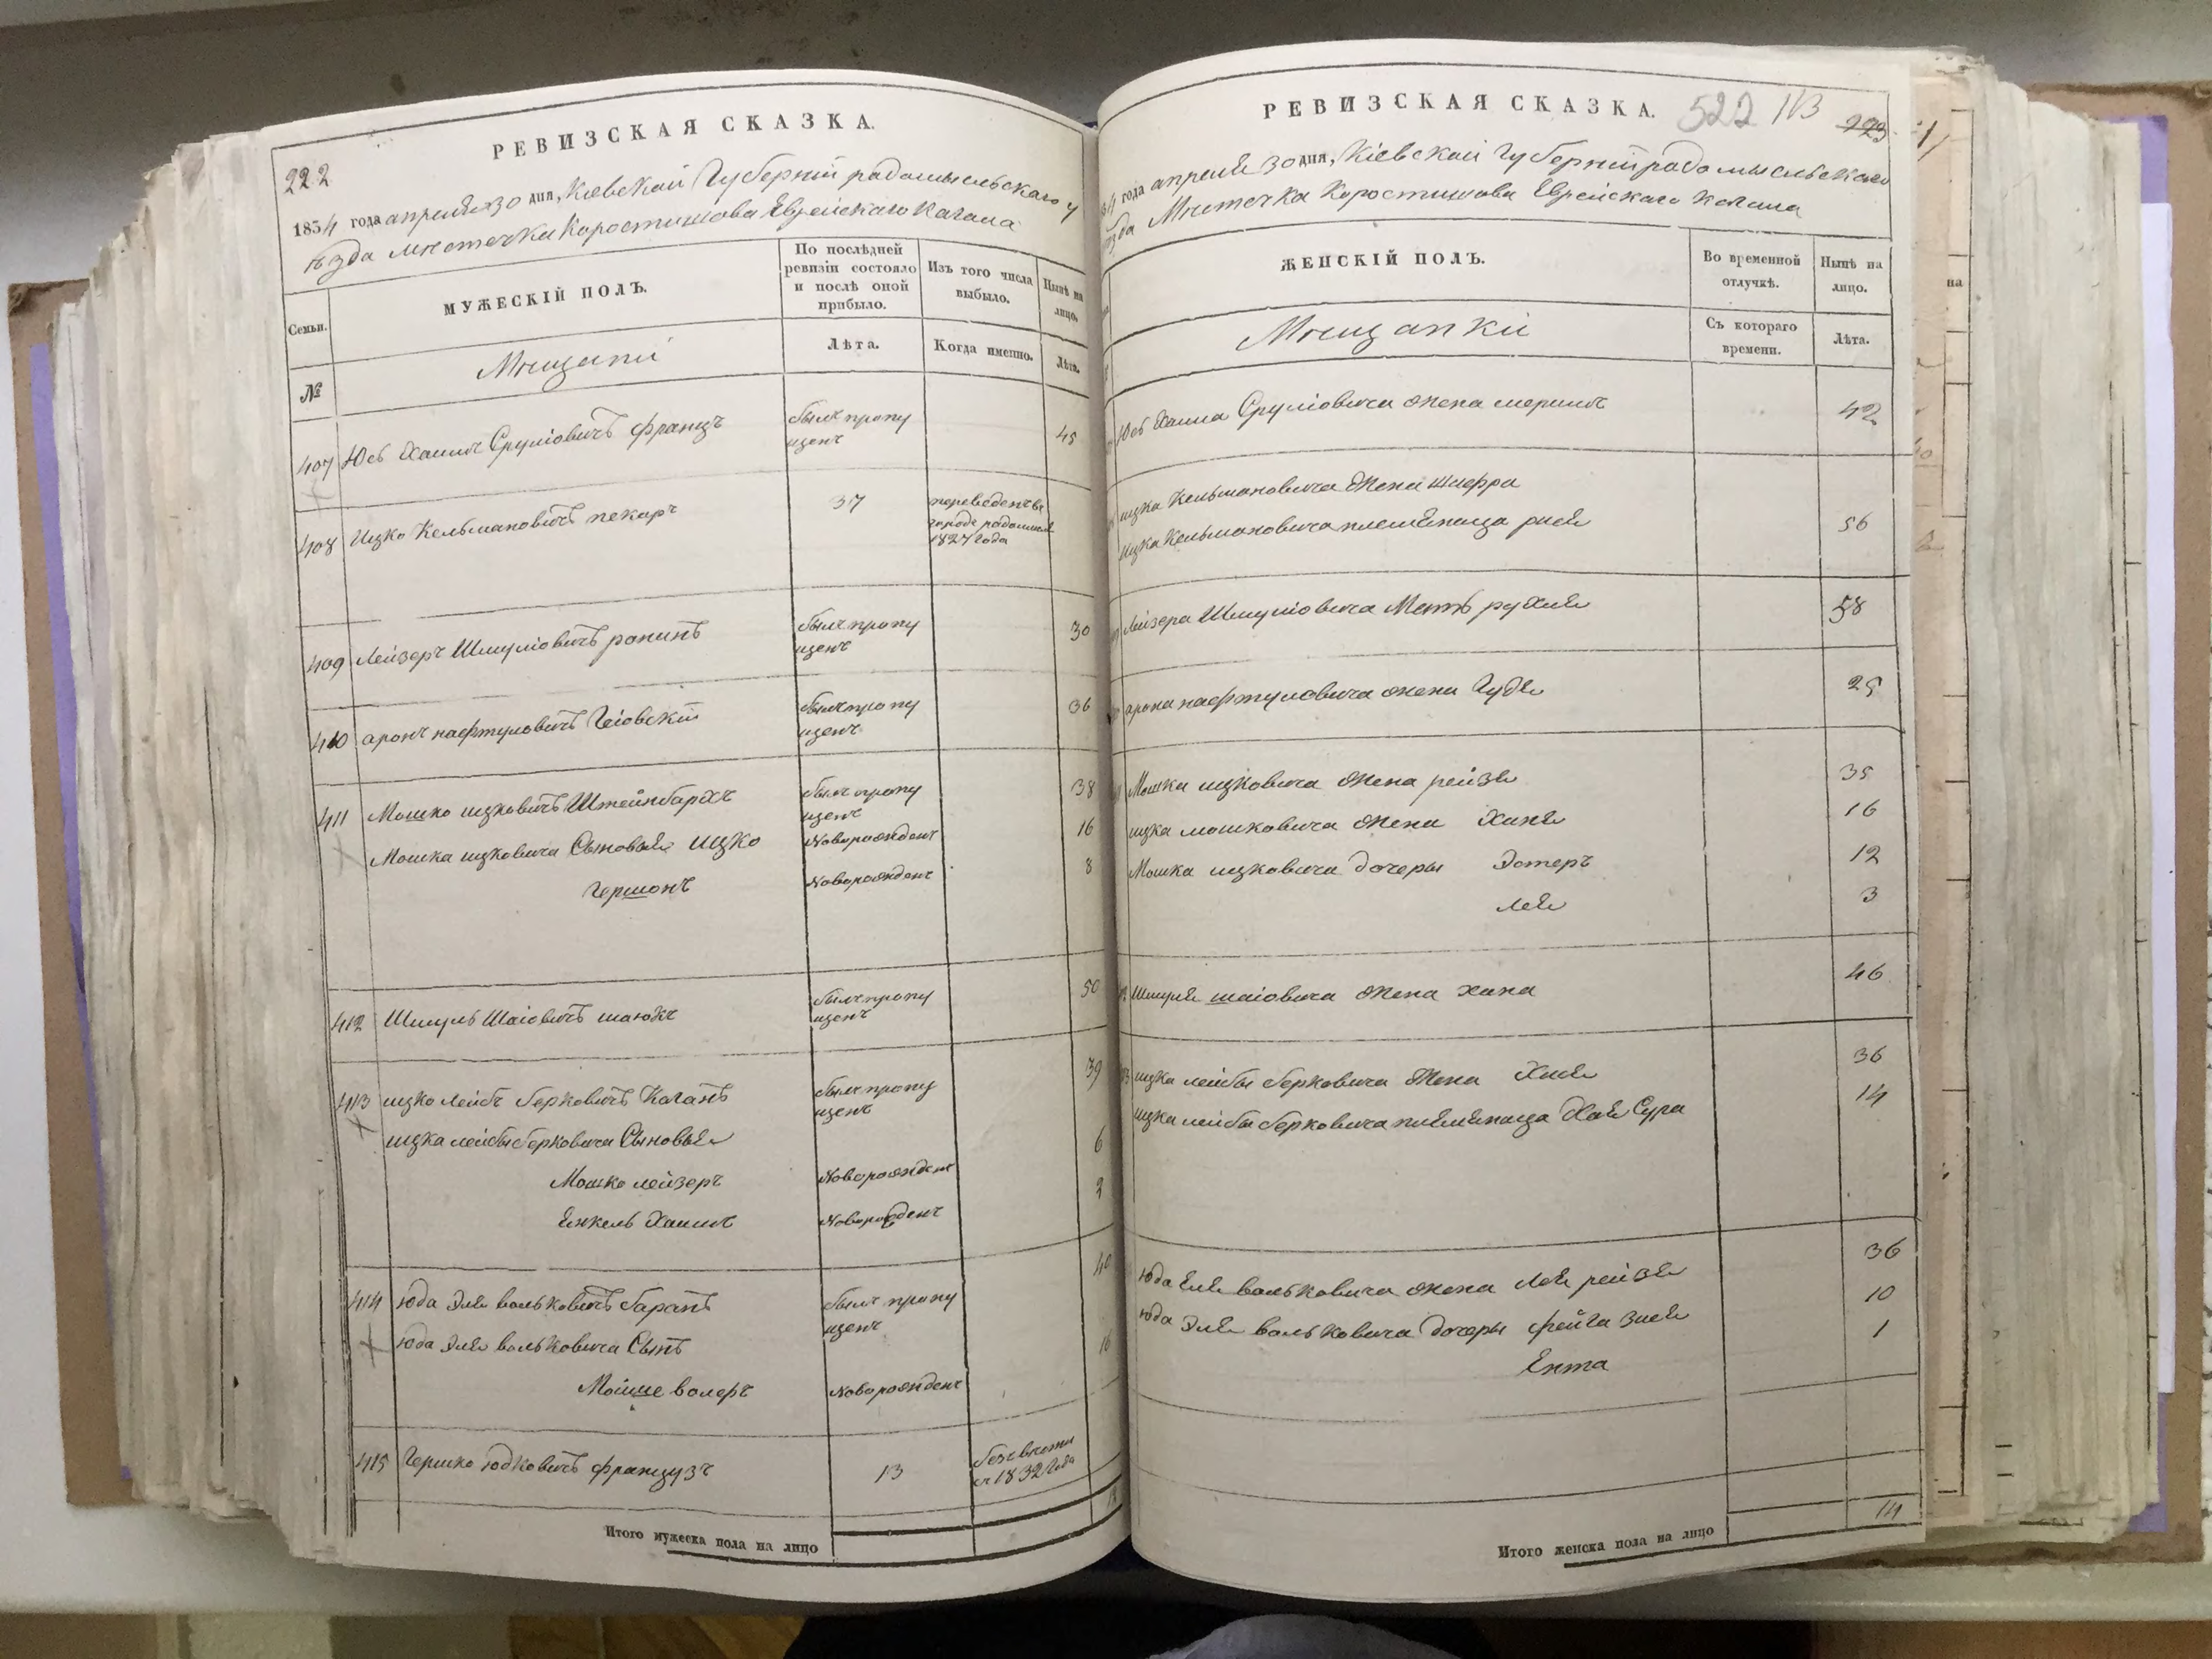 РЕВИЗСКАЯ СКАЗКА.
222
1834 года апреля 30 дня, Кіевской Губерніи радомысльскаго у
ѣзда Мѣстечка Коростишова Еврейскаго Кагала
Семьи.
МУЖЕСКІЙ ПОЛЪ.
По послѣдней
ревизіи состояло
и послѣ оной
прибыло.
Изъ того числа
выбыло.
Нынѣ на
лицо.
№
Мѣщани
Лѣта.
Когда именно.
Лѣта.
407 Юсь Хаимъ Сруліовичъ францъ былъ пропу 45
щенъ
408 Ицко Кельмановичъ пекаръ 37 переведенъ въ
городъ радомысль
1827 года
409 Лейзеръ Шмуліовичъ ронинъ былъ пропу 30
щенъ
410 аронъ нафтуловичъ былъ пропу 36
щенъ
411 Мошко ицковичъ Штейнбархъ былъ пропу 38
щенъ
Мошка ицковича Сыновья ицко Новорожденъ 16
Гершонъ Новорожденъ 8
412 Шмуль Шаіовичъ шаюкъ былъ пропу 50
щенъ
413 ицко лейбъ берковичъ Каганъ былъ пропу 39
щенъ
ицка лейбы берковича Сыновья
Мошко лейзеръ Новорожденъ 6
Енкель Хаимъ Новорожденъ 2
414 юда Эля вольковичъ баранъ былъ пропу 40
щенъ
юда Эля вольковича Сынъ
Мойше волеръ Новорожденъ 16
415 Гершко юдковичъ французъ 13 безъ вѣсти
съ 1832 года
Итого мужеска пола на лицо
РЕВИЗСКАЯ СКАЗКА.
522 113 223
года апреля 30 дня, Кіевской Губерніи радомысльскаго
ѣзда Мѣстечка Коростишова Еврейскаго Кагала
ЖЕНСКІЙ ПОЛЪ.
Во временной
отлучкѣ.
Нынѣ на
лицо.
Мѣщанки
Съ котораго
времени.
Лѣта.
Юся Хаима Сруліовича жена 42
ицка Кельмановича жена шифра
ицка Кельмановича племяница 56
Лейзера Шмуліовича Мать рухля 58
арона нафтуловича жена Гудя 25
Мошка ицковича жена рейзя 35
ицка мошковича жена Хиня 16
Мошка ицковича дочеры Эстеръ 12
лея 3
Шмуля шаіовича жена хана 46
ицка лейбы берковича жена 36
ицка лейбы берковича племяница Хая Сура 14
юда Еля вольковича жена Лея рейзя 36
юда Эля вольковича дочеры фейга 10
Ента 1
Итого женска пола на лицо 14
на